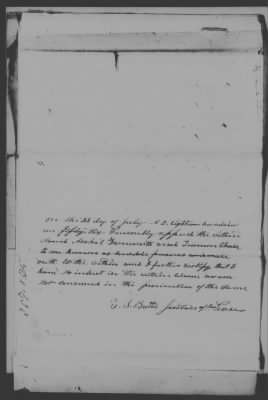 on this 28 day of July A.D. eighteen hundred
an fifty six Personally appeard the within
Named Asahel Farnworth and Truman Chase
to me known as credible persons and made
oath to the within and I further certify that I
have no intrest in the within claim or am
not concerned in the prosecution of the same
E. S. Butler Justice of the Peace